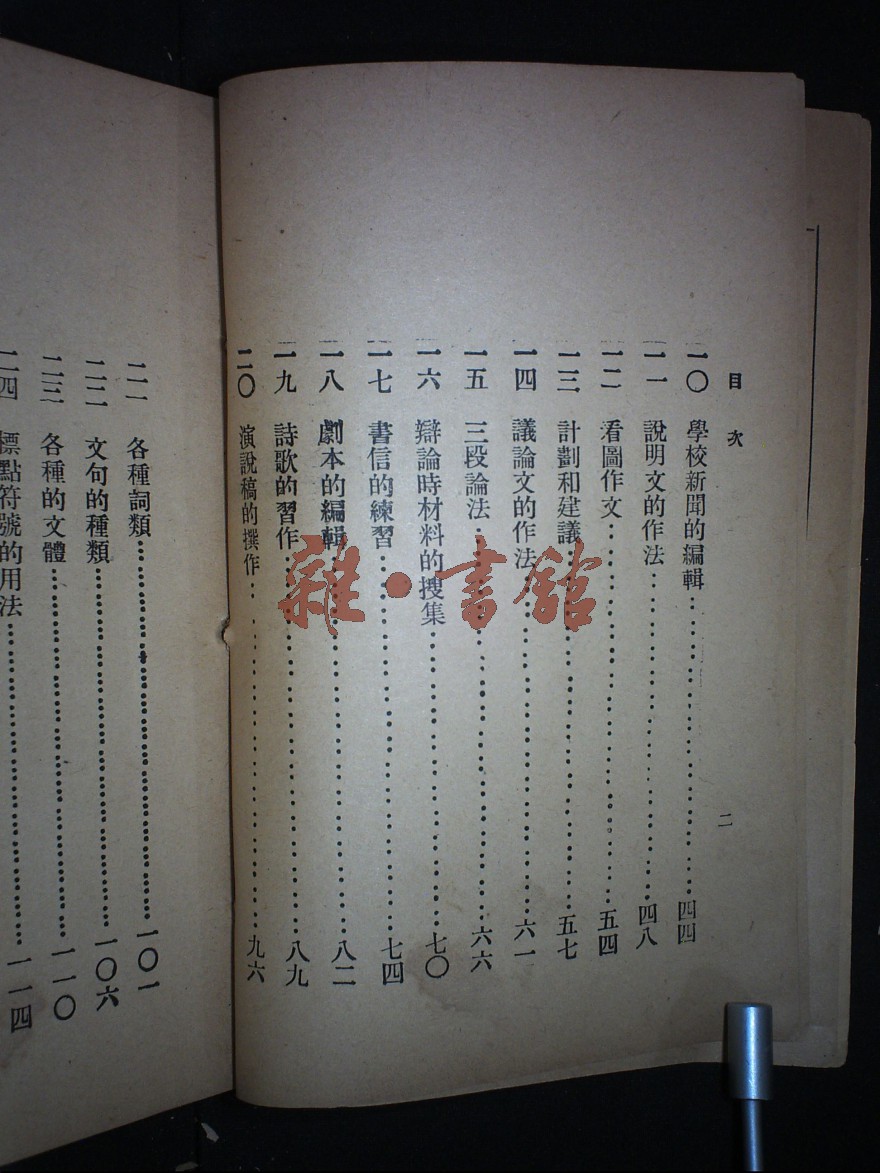 目次
二
一〇 學校新聞的編輯……四四
一一 說明文的作法……四八
一二 看圖作文……五四
一三 計劃和建議……五七
一四 議論文的作法……六一
一五 三段論法……六六
一六 辯論時材料的搜集……七〇
一七 書信的練習……七四
一八 劇本的編輯……八二
一九 詩歌的習作……八九
二〇 演說稿的撰作……九六
二一 各種詞類……一〇一
二二 文句的種類……一〇六
二三 各種的文體……一一〇
二四 標點符號的用法……一一四
雜·書館